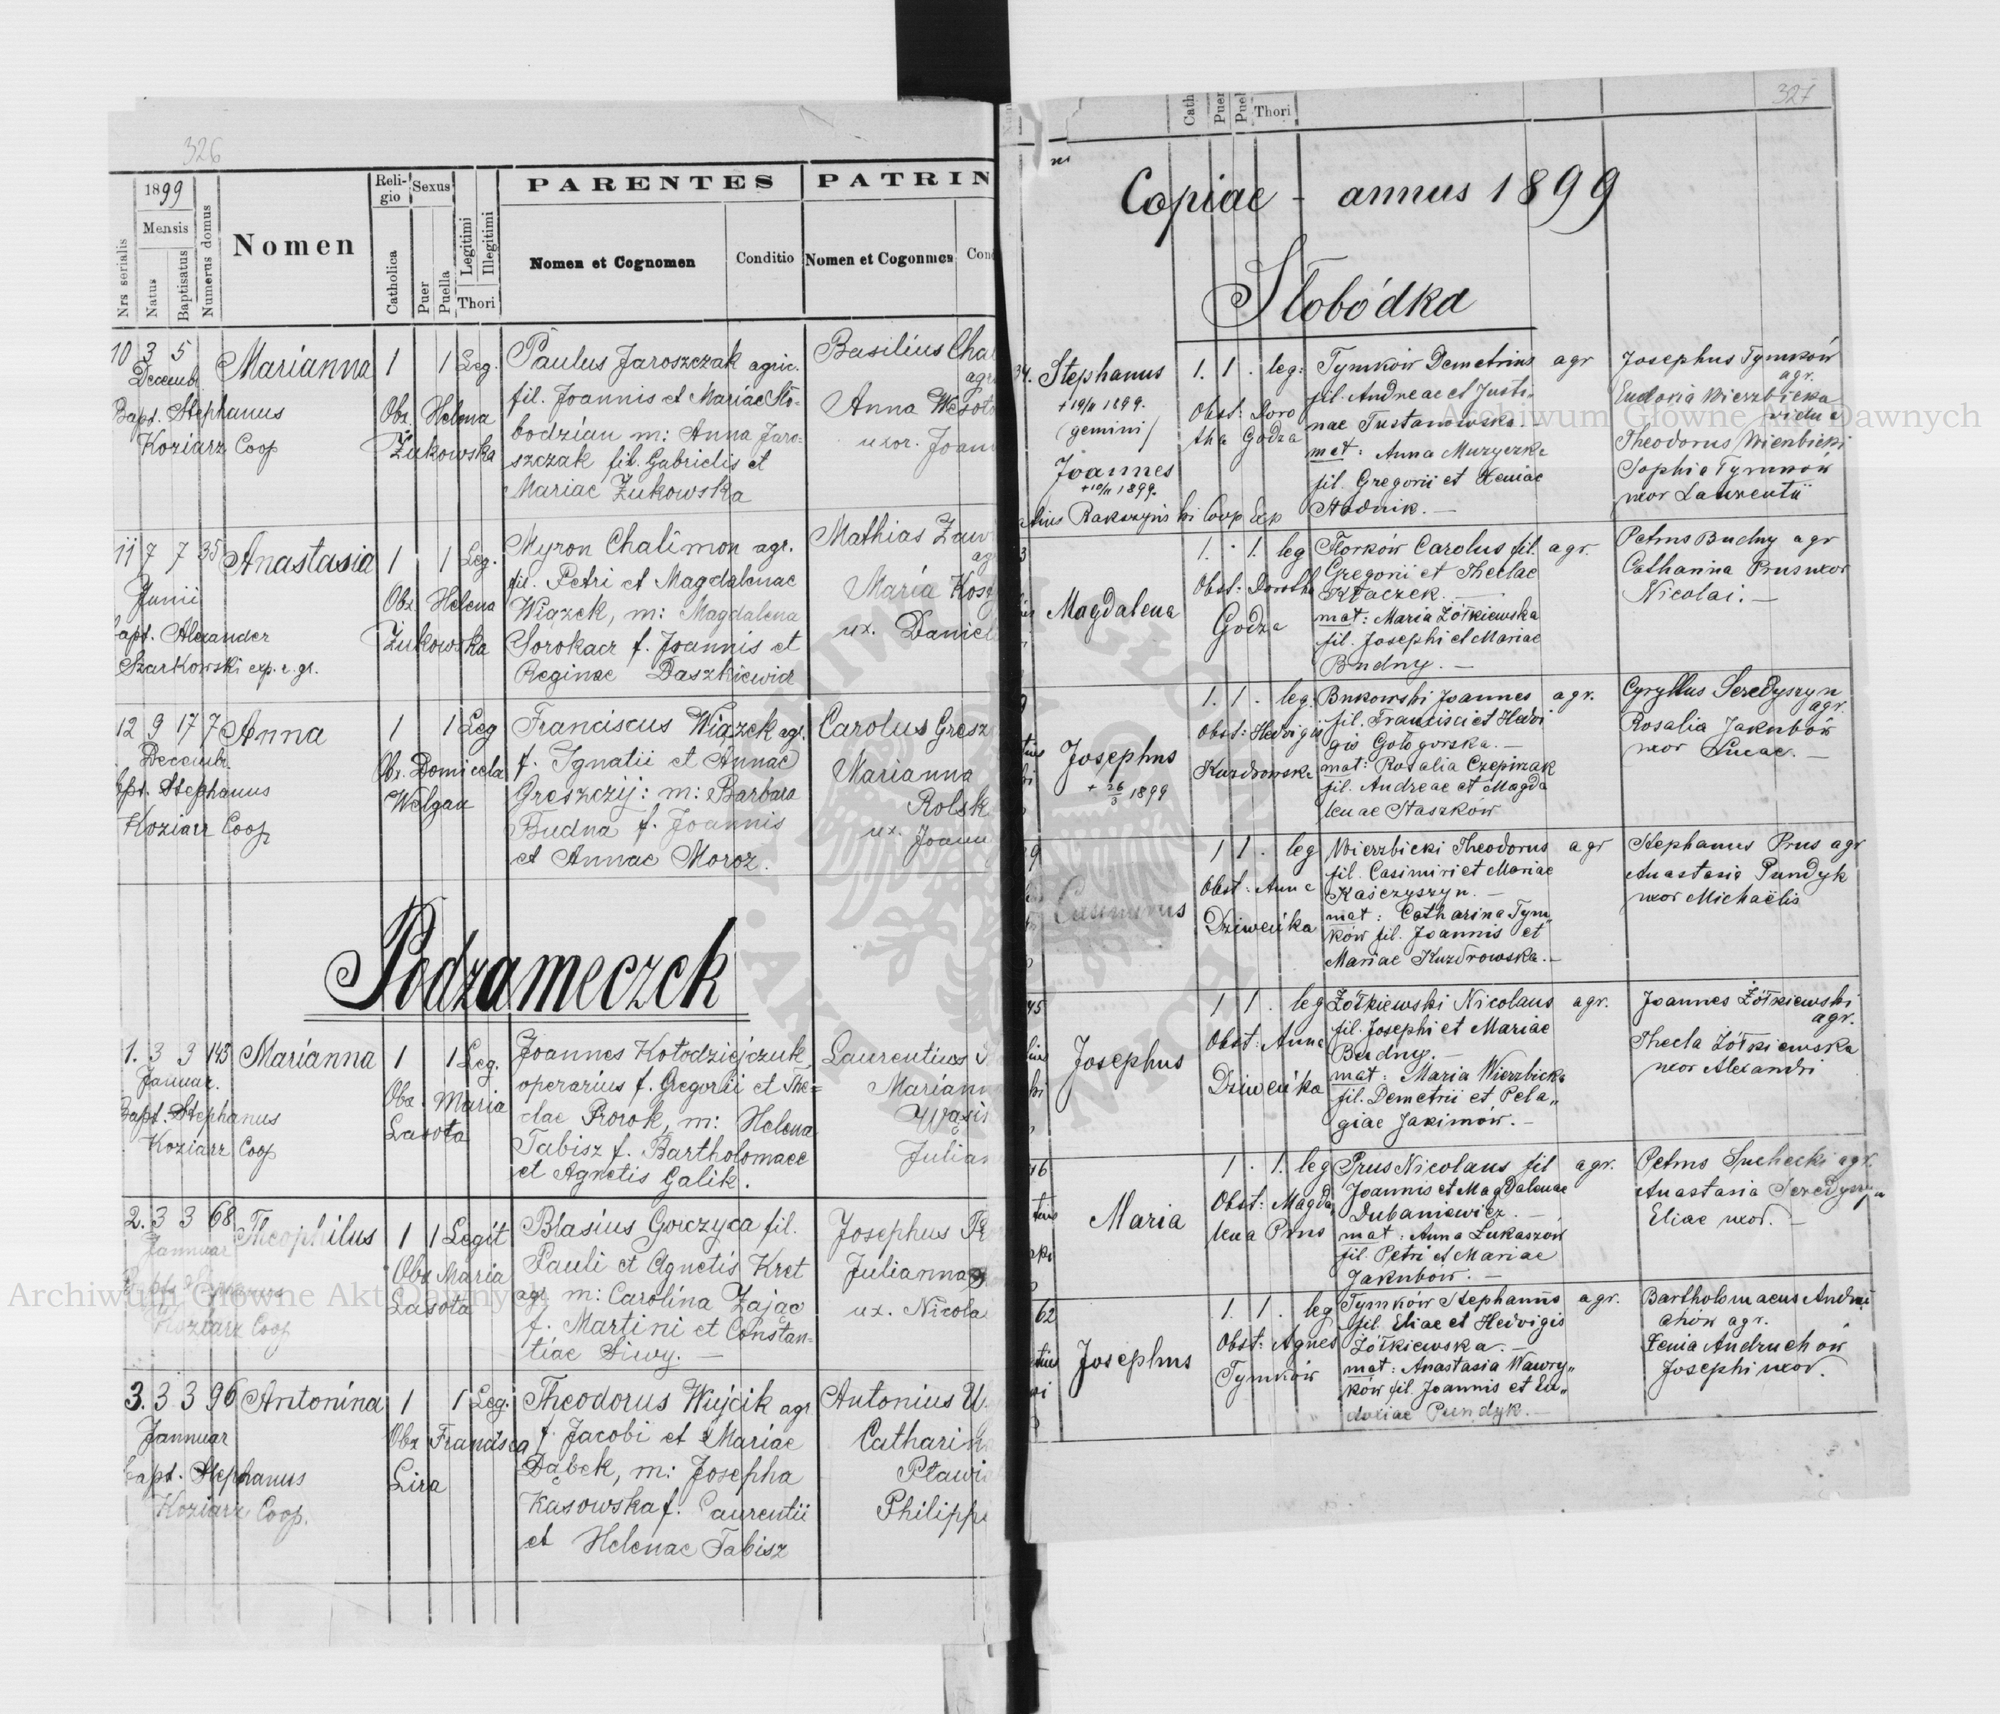 326
1899
Mensis
Nrs serialis
Natus
Baptisatus
Numerus domus
Nomen
Religio
Catholica
Sexus
Puer
Puella
Legitimi
Illegitimi
Thori
PARENTES
Nomen et Cognomen
Conditio
PATRIN
Nomen et Cogonmes
Con
10 3 5 Marianna 1 1 Leg.
Decembr
Bapt. Stephanus
Koziarz Coop
Obx. Helena
Żukowska
Paulus Jaroszczak agric.
fil. Joannis et Mariae Sło-
bodzian m: Anna Jaro-
szczak fil. Gabrielis et
Mariae Żukowska
Basilius Chal
agr
Anna Wesoł
uxor. Joan
11 7 7 35 Anastasia 1 1 Leg.
Junii
bapt. Alexander
Szarkowski exp. r. gr.
Obx Helena
Żukowska
Myron Chalimon agr.
fil. Petri et Magdalenae
Wiązek, m: Magdalena
Sorokacz f. Joannis et
Reginae Daszkiewicz
Mathias Zaw
agr
Maria Kos
ux. Daniel
12 9 17 7 Anna 1 1 Leg
Decembr.
bpt. Stephanus
Koziarz Coop
Obx. Domicela
Welgan
Franciscus Wiązek agr.
f. Ignatii et Annae
Greszczij: m: Barbara
Budna f. Joannis
et Annae Moroz.
Carolus Gresz
Marianna
Rolsk
ux. Joann
Podzameczek
1. 3 3 143 Marianna 1 1 Leg.
Januar.
Bapt. Stephanus
Koziarz Coop
Obx. Maria
Lasota
Joannes Kołodziejczuk
operarius f. Gregorii et The=
clae Prorok, m: Helena
Tabisz f. Bartholomaee
et Agnetis Galik.
Laurentius
Mariann
Wąsi
Julian
2. 3 3 68 Theophilus 1 1 Legit
Januar
Bapt. Stephanus
Koziarz Coop
Obx Maria
Lasota
Blasius Gorczyca fil.
Pauli et Agnetis Kret
agr m: Carolina Zając
f. Martini et Constan-
tiae Siwy. —
Josephus
Julianna
ux. Nicola
3. 3 3 96 Antonina 1 1 Leg.
Jannuar
bapt. Stephanus
Koziarz Coop.
Obx Francisca
Lira
Theodorus Wujcik agr
f. Jacobi et Mariae
Dąbek, m: Josepha
Kasowska f. Laurentii
et Helenae Tabisz
Antonius
Catharin
Pławi
Philipp
327
Cath
Puer
Puel
Thori
Copiae - annus 1899
Słobódka
34. Stephanus
+19/11 1899.
gemini/
Joannes
+10/11 1899.
Rakszyński Coop Exp
1. 1 . leg:
Obst: Doro
tha Godza
Tymków Demetrius agr
fil. Andreae et Justi-
nae Tustanowska. -
mat: Anna Muzyczka
fil. Gregorii et Xeniae
Stadnik. -
Josephus Tymków
agr.
Eudoxia Wierzbicka
vidua
Theodorus Wierzbicki
Sophia Tymków
uxor Laurentii
3
Magdalena
1. . 1. leg
Obst: Dorotha
Godza
Florków Carolus fil. agr.
Gregorii et Theclae
Tkaczek. -
mat: Maria Żółkiewska
fil. Josephi et Mariae
Budny. -
Petrus Budny agr
Catharina Prus uxor
Nicolai. -
9
Josephus
+ 26/3 1899
1. 1. . leg:
Obst: Hedvigis
Kuzdrowska
Bukowski Joannes agr.
fil. Francisci et Hedvi
gis Gołogorska. -
mat: Rosalia Czepirzak
fil. Andreae et Magda
lenae Staszków
Cyryllus Seredyszyn
agr.
Rosalia Jakubów
uxor Lucae. -
9
Casimirus
1 1 . leg
Obst: Anna
Dziweńka
Wierzbicki Theodorus agr
fil. Casimiri et Mariae
Kaśczyszyn. -
mat: Catharina Tym„
ków fil. Joannis et
Mariae Kuzdrowska. -
Stephanus Prus agr
Anastasia Pundyk
uxor Michaëlis
45
Josephus
1 1 . leg
Obst: Anna
Dziweńka
Żółkiewski Nicolaus agr.
fil. Josephi et Mariae
Budny. -
mat: Maria Wierzbicka
fil. Demetrii et Pela„
giae Jakimów. -
Joannes Żółkiewski
agr.
Thecla Żółkiewska
uxor Alexandri
46
Maria
1 . 1. leg
Obst: Magda
lena Prus
Prus Nicolaus fil agr.
Joannis et Magdalenae
Dubaniewicz. -
mat: Anna Łukaszów
fil. Petri et Mariae
Jakubów. -
Petrus Suchecki agr.
Anastasia Seredyszyn
Eliae uxor. -
62
Josephus
1. 1. . leg
Obst: Agnes
Tymków
Tymków Stephanus agr.
fil. Eliae et Hedvigis
Żółkiewska. -
mat: Anastasia Wawry„
ków fil. Joannis et Eu„
doxiae Pundyk. -
Bartholomaeus Andru
chów agr.
Xenia Andruchów
Josephi uxor.
Archiwum Główne Akt Dawnych
Archiwum Główne Akt Dawnych